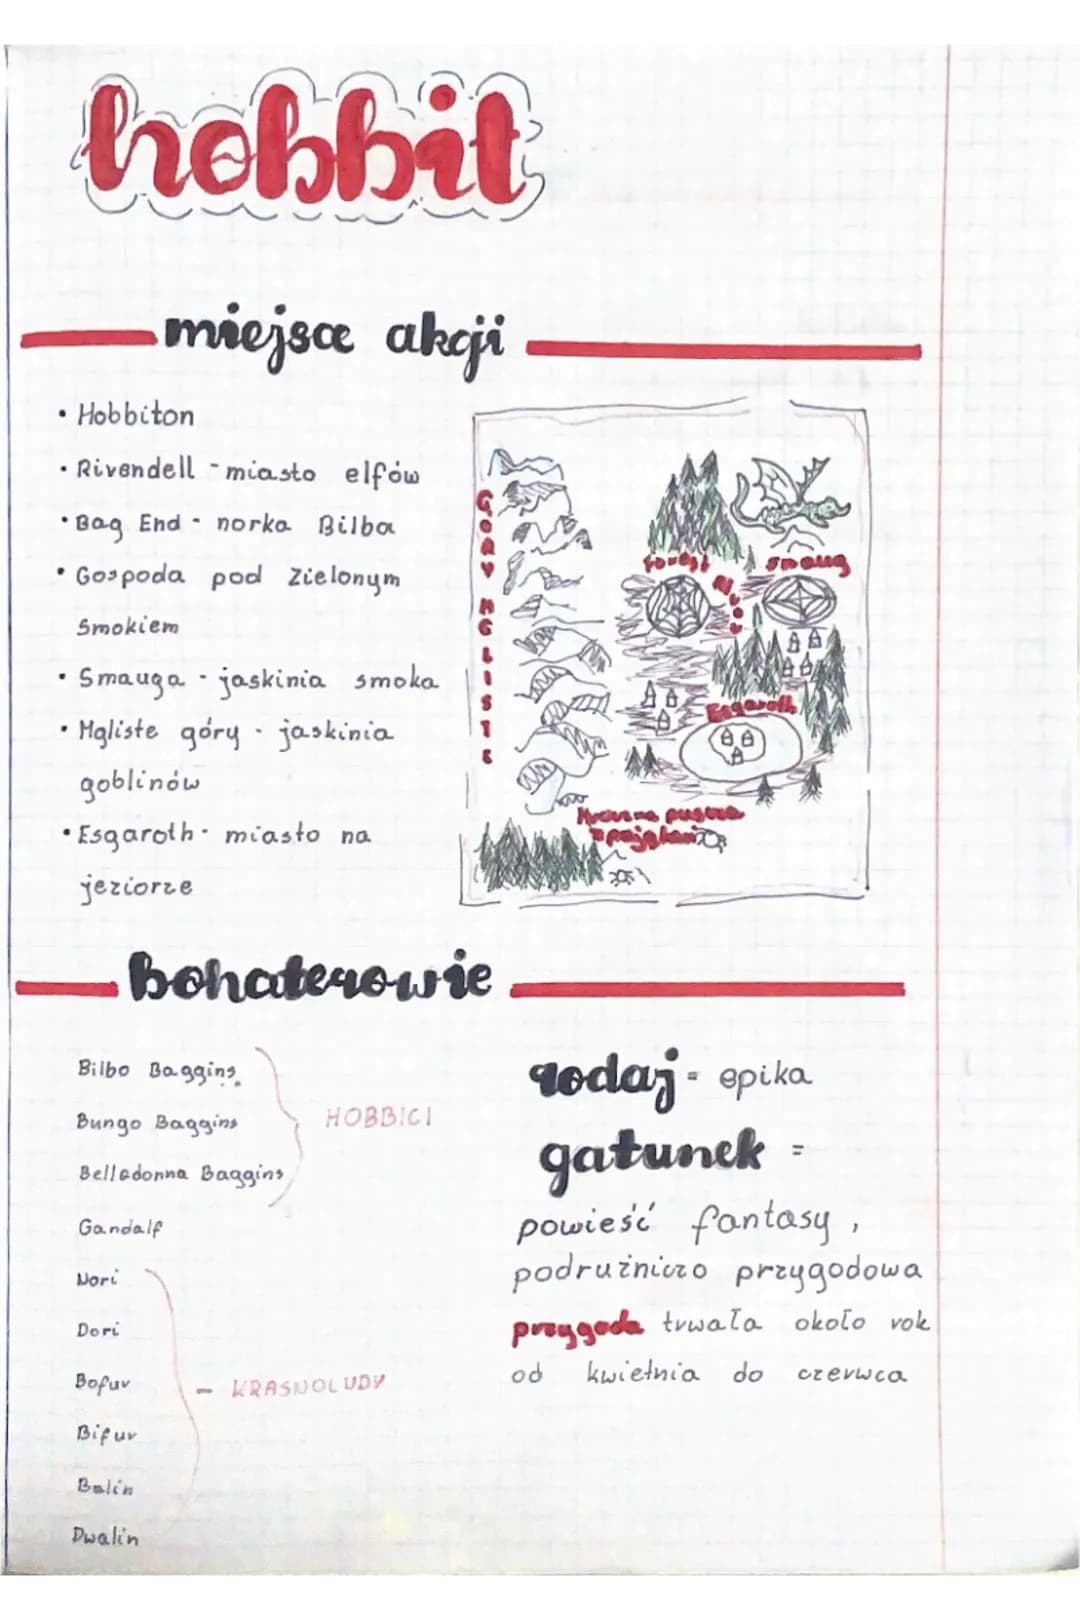 hobbit
miejsce akcji
• Hobbiton
• Rivendell - miasto elfów
• Bag End - norka Bilba
• Gospoda pod Zielonym
Smokiem
• Smauga - jaskinia smoka
• Mgliste góry - jaskinia
goblinów
• Esgaroth - miasto na
jeziorze
GÓRY MGLISTE
Forest
River
Smaug
Esgaroth
Mroczna puszcza
z pająkami
Bohaterowie
Bilbo Baggins
Bungo Baggins
Belladonna Baggins
HOBBICI
Gandalf
Nori
Dori
Bofur
Bifur
Balin
Dwalin
- KRASNOLUDY
rodaj = epika
gatunek =
powieść fantasy,
podružniczo przygodowa
przygoda trwała około rok
od kwietnia do czerwca